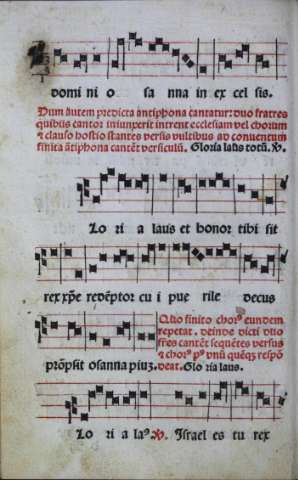 domi ni o sa nna in ex cel sis.
Dum autem predicta antiphona cantatur: duo fratres
quibus cantor iniunxerit intrent ecclesiam vel chorum
& clauso hostio stantes versis vultibus ad conuentum
finita antiphona cantēt versiculū. Gloria laus totū. V.
Lo ri a laus et honor tibi sit
rex xp̄e redēptor cu i pue rile decus
Quo finito chorꝰ eundem
repetat. deinde dicti duo
frēs cantēt sequētes versus
prōpsit osanna piuz. & chorꝰ pꝰ vnū quēqꝫ respō
deat. Glo ria laus.
Lo ri a laꝰ V. Israel es tu rex